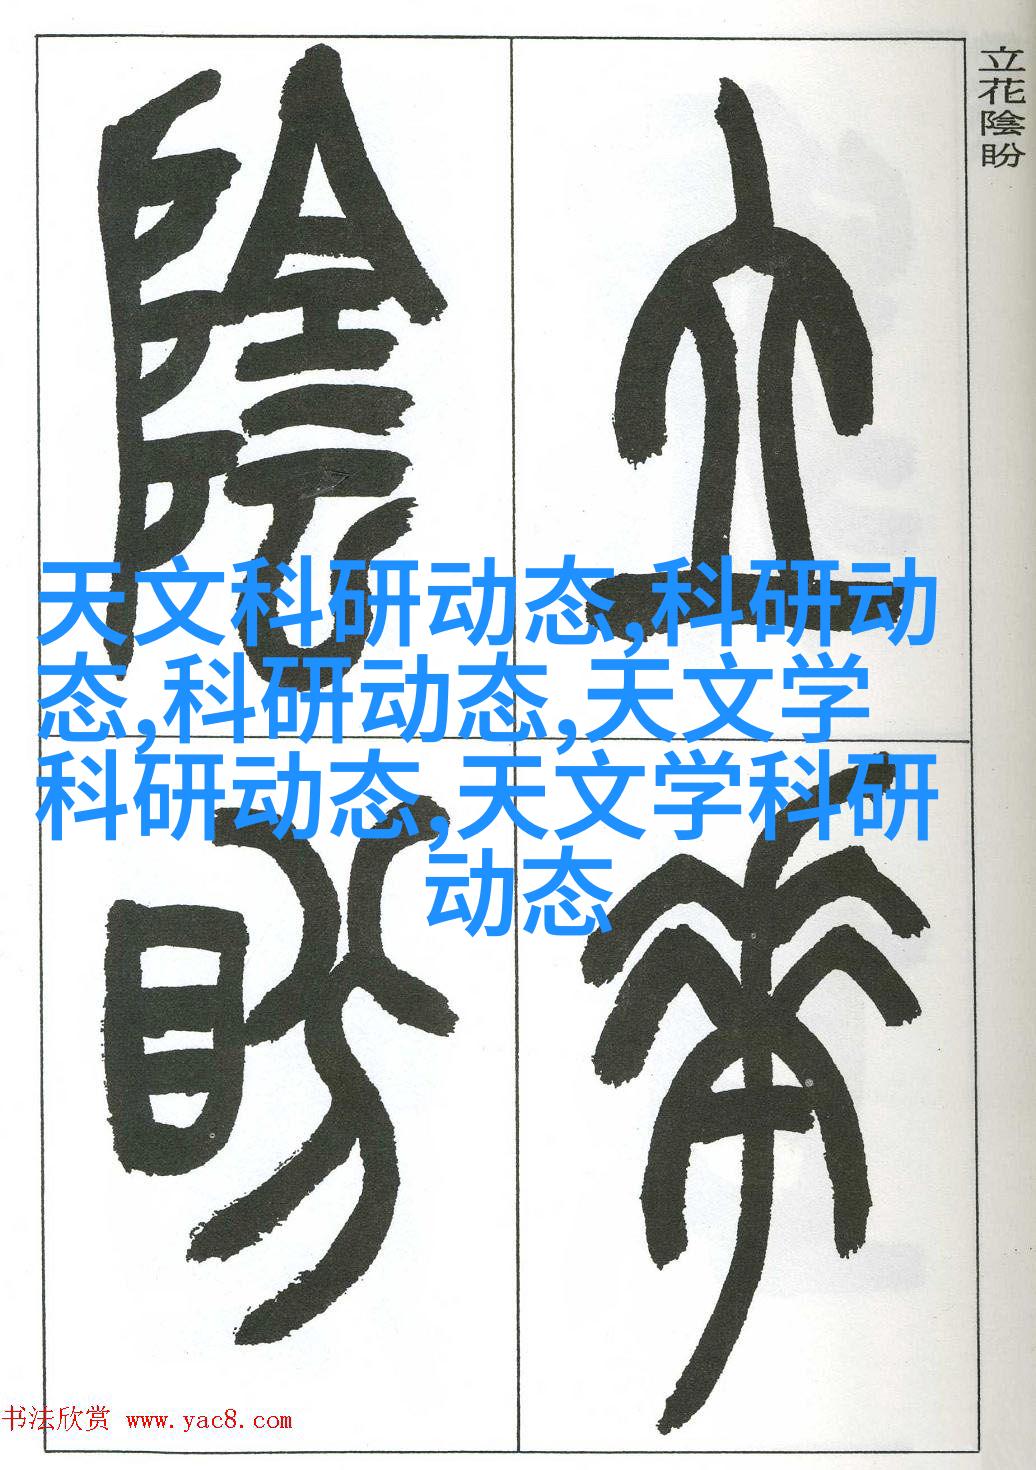 立花陰盼
立
花
陰
盼
天文科研动态,科研动
态,科研动态,天文学
科研动态,天文学科研
动态
书法欣赏 www.yac8.com